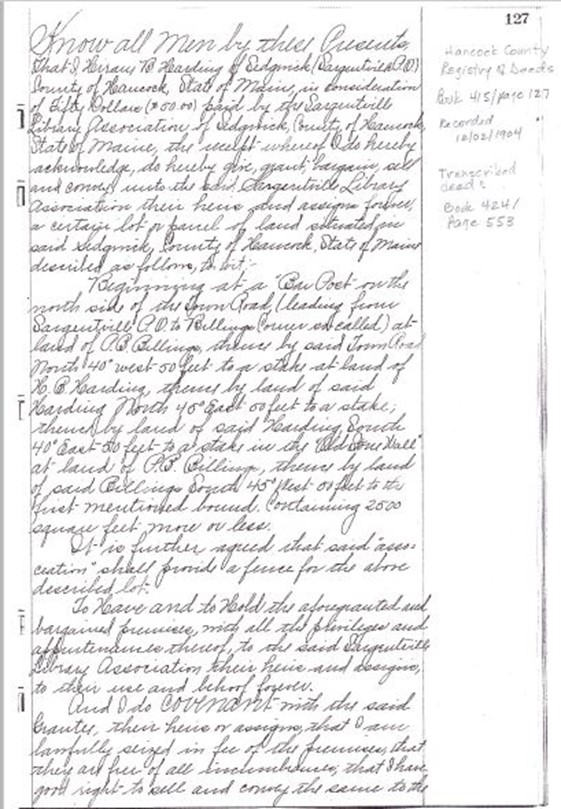 127
Know all Men by these Presents,
That I, Hiram B. Harding of Sedgwick, (Sargentville P.O.)
County of Hancock, State of Maine, in consideration
of Fifty Dollars ($50.00) paid by the Sargentville
Library Association of Sedgwick, County of Hancock,
State of Maine, the receipt whereof I do hereby
acknowledge, do hereby give, grant, bargain, sell
and convey unto the said Sargentville Library
Association their heirs and assigns forever,
a certain lot or parcel of land situated in
said Sedgwick, County of Hancock, State of Maine
described as follows, to wit:-
Beginning at a "Bar Post" on the
north side of the Town Road, (leading from
Sargentville P.O. to Billings Corner so called) at
land of P.B. Billings, thence by said Town Road
North 40° west 50 feet to a stake at land of
H. B. Harding, thence by land of said
Harding North 45° East 50 feet to a stake;
thence by land of said Harding South
40° East 50 feet to a stake in the "Old Stone Wall"
at land of P.B. Billings, thence by land
of said Billings South 45° West 50 feet to the
first mentioned bound. Containing 2500
square feet more or less.
It is further agreed that said "asso-
ciation" shall provide a fence for the above
described lot.
To Have and to Hold the aforegranted and
bargained premises, with all the privileges and
appurtenances thereof, to the said Sargentville
Library Association their heirs and assigns,
to their use and behoof forever.
And I do COVENANT with the said
Grantee, their heirs or assigns, that I am
lawfully seized in fee of the premises, that
they are free of all incumbrances; that I have
good right to sell and convey the same to the
Hancock County
Registry of Deeds
Book 415/page 127
Recorded
12/02/1904
Transcribed
deed:
Book 424/
Page 553